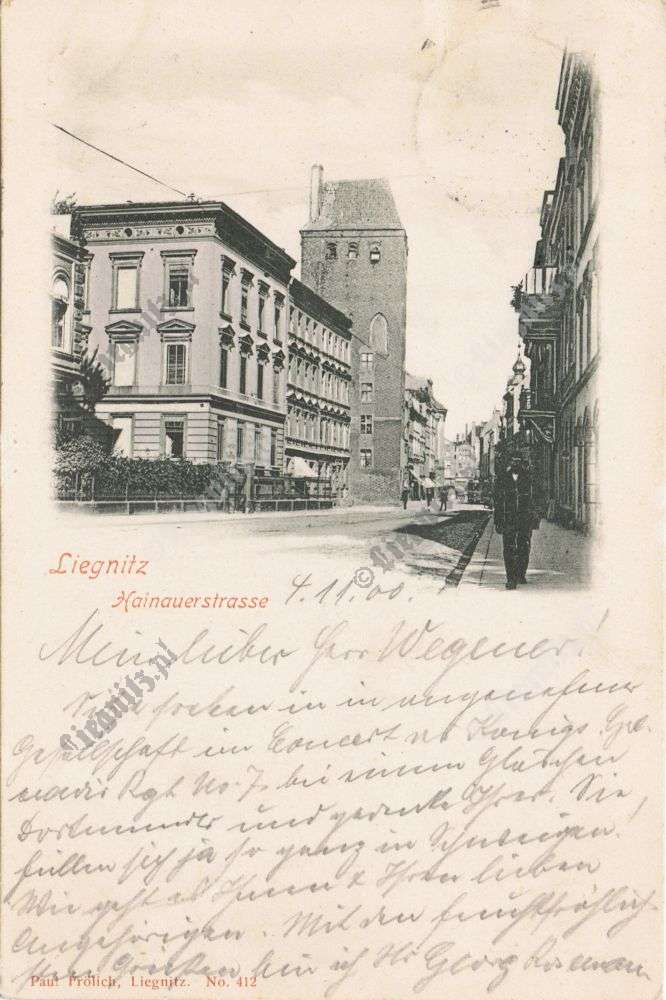 Liegnitz
Hainauerstrasse
4.11.00.
Mein lieber Herr Wegener!
Sitze soeben in in angenehmer
Gesellschaft im Concert des Königs Gre-
nadir Rgt No. 7. bei einem Gläschen
Dortmunder und gedenke Ihrer. Sie
hüllen sich ja so ganz in Schweigen!
Wie geht es Ihnen & Ihren lieben
Angehörigen. Mit den feuchtfröhlich-
sten Grüssen bin ich Ihr Georg
Paul Frölich, Liegnitz. No. 412
© Liegnitz.pl